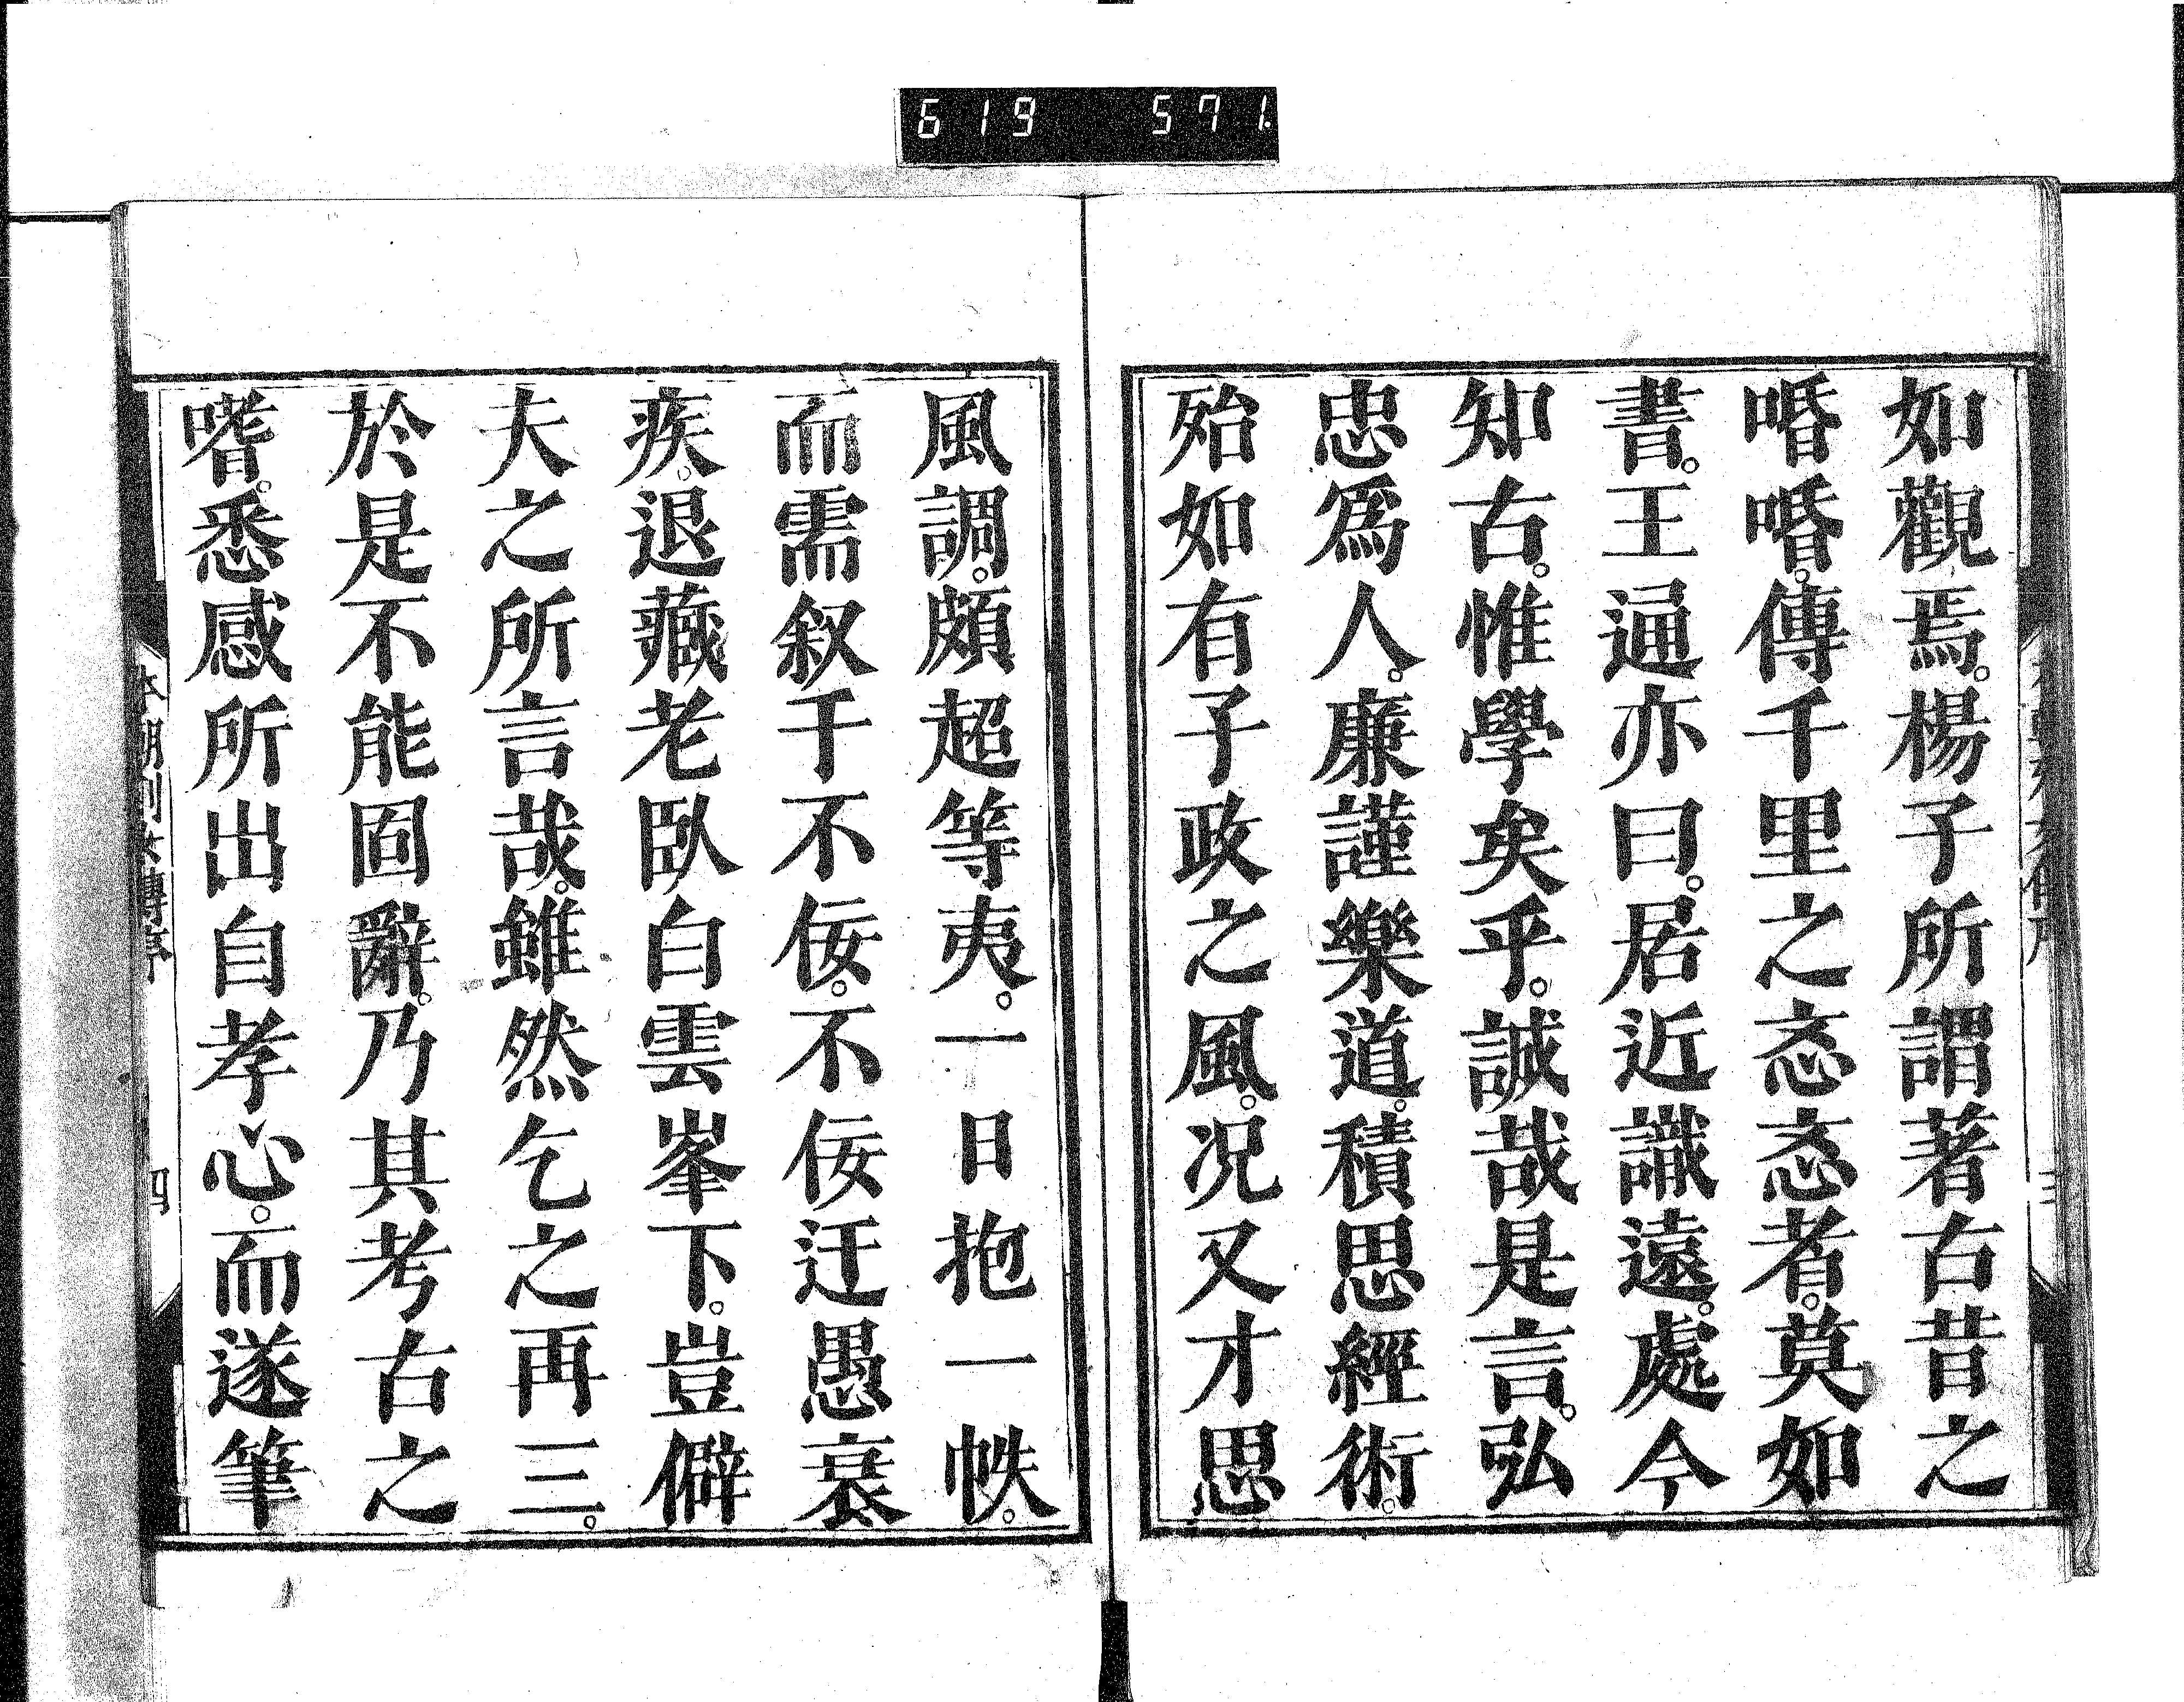 619 571.
如觀焉。楊子所謂著古昔之
㖧㖧。傳千里之忞忞者。莫如
書。王通亦曰。居近識遠。處今
知古。惟學矣乎。誠哉是言。弘
忠爲人。廉謹樂道。積思經術。
殆如有子政之風。况又才思
三
風調。頗超等夷。一日抱一帙。
而需叙于不佞。不佞迂愚衰
疾。退藏老臥白雲峯下。豈僻
夫之所言哉。雖然乞之再三。
於是不能固辭。乃其考古之
嗜。悉感所出自孝心。而遂筆
本朝列女傳序 四